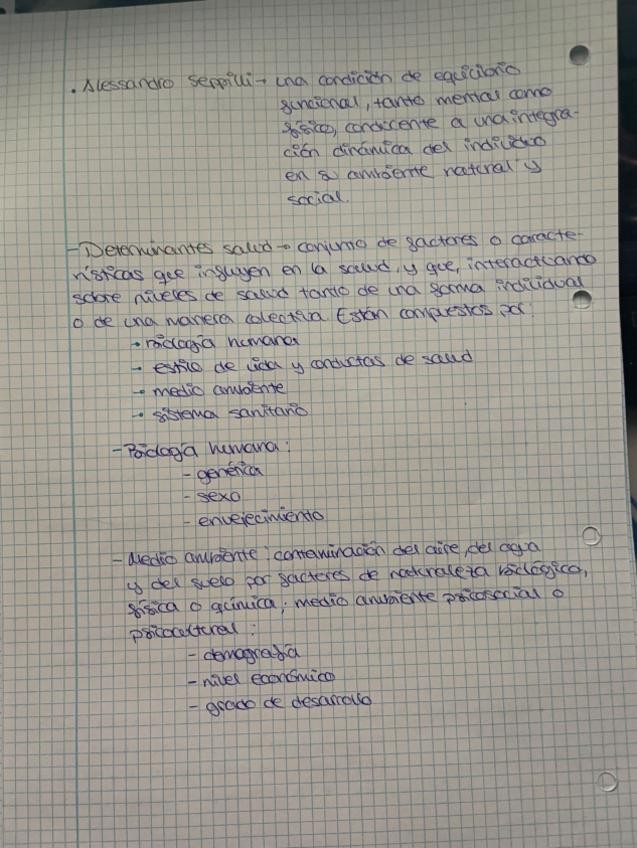 . Alessandro Seppilli → una condición de equilibrio
funcional, tanto mental como
física, conducente a una integra-
ción dinámica del individuo
en su ambiente natural y
social.
- Determinantes salud → conjunto de factores o caracte-
rísticas que influyen en la salud, y que, interactuando
sobre niveles de salud tanto de una forma individual
o de una manera colectiva. Están compuestos por:
→ biología humana
→ estilo de vida y conductas de salud
→ medio ambiente
→ sistema sanitario
- Biología humana:
- genética
- sexo
- envejecimiento
- Medio ambiente: contaminación del aire, del agua
y del suelo por factores de naturaleza biológica,
física o química; medio ambiente psicosocial o
psicocultural:
- demografía
- nivel económico
- grado de desarrollo